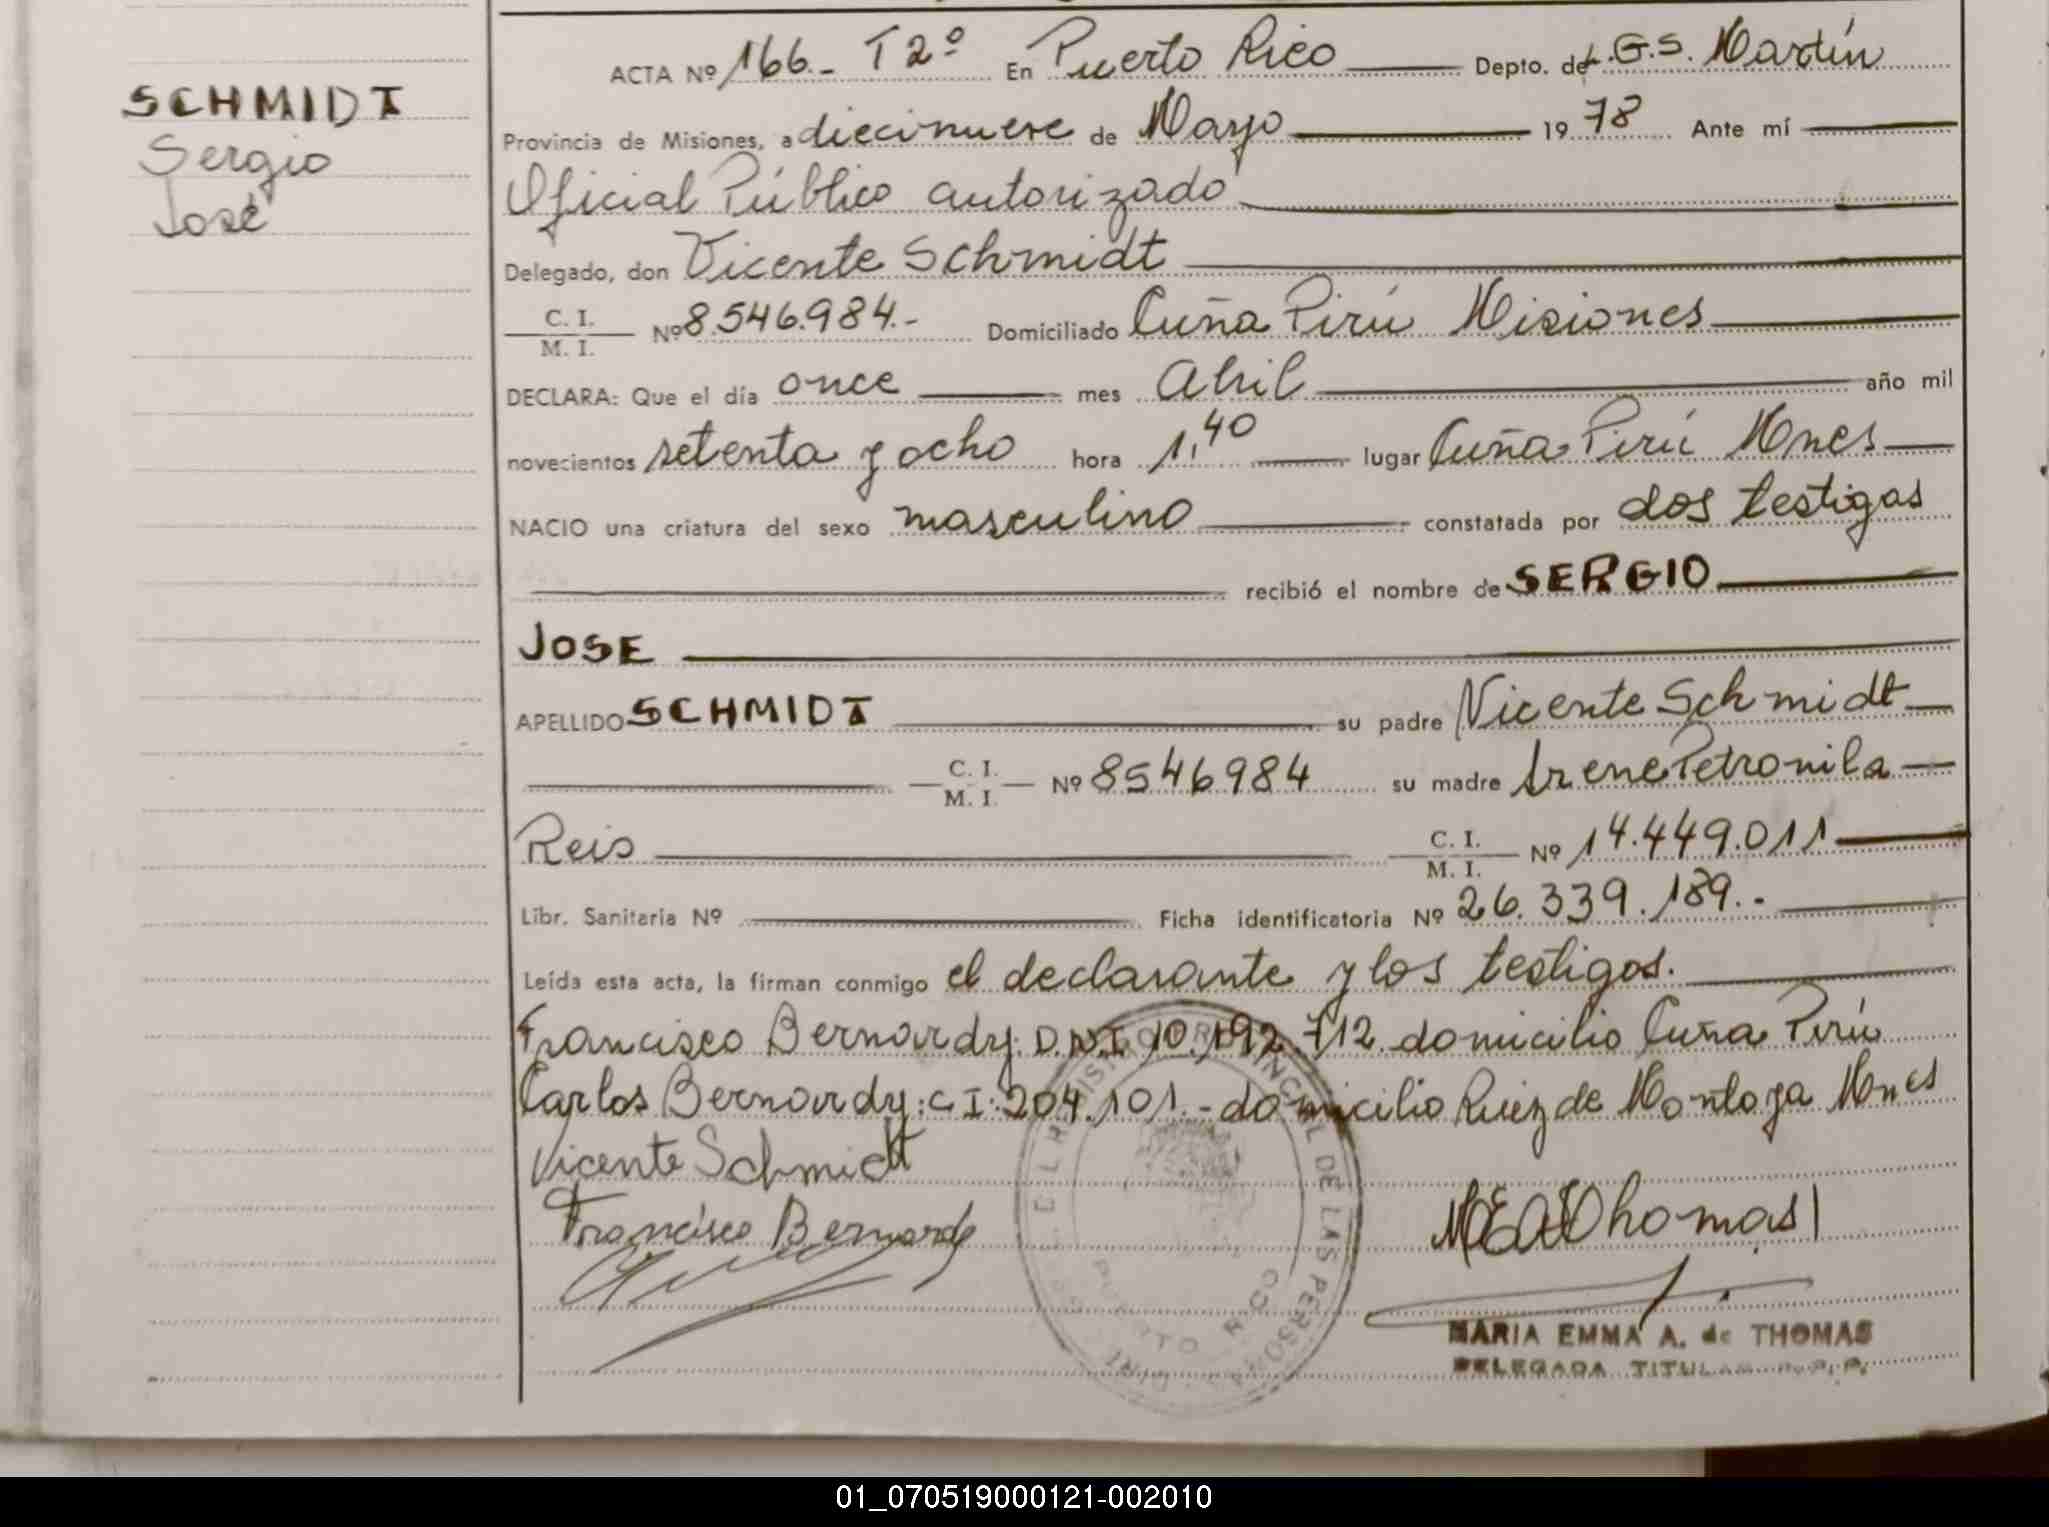 SCHMIDT
Sergio
José
ACTA Nº 166.- T 2º En Puerto Rico Depto. de L.G.S. Martín
Provincia de Misiones, a diecinueve de Mayo 19 78 Ante mí
Oficial Público autorizado
Delegado, don Vicente Schmidt
C. I. / M. I. Nº 8.546.984.- Domiciliado Cuña Pirú Misiones
DECLARA: Que el día once mes Abril año mil
novecientos setenta y ocho hora 1,40 lugar Cuña Pirú Mnes
NACIO una criatura del sexo masculino constatada por dos testigos
recibió el nombre de SERGIO
JOSE
APELLIDO SCHMIDT su padre Vicente Schmidt
C. I. / M. I. Nº 8546984 su madre Irene Petronila
Reis C. I. / M. I. Nº 14.449.011
Libr. Sanitaria Nº Ficha identificatoria Nº 26.339.189.-
Leída esta acta, la firman conmigo el declarante y los testigos.
Francisco Bernardy: D.N.I. 10.192.712. domicilio Cuña Pirú
Carlos Bernardy: C I: 204.101.- domicilio Ruiz de Montoya Mnes
Vicente Schmidt
Francisco Bernardy
MEAdThomas
PUERTO RICO
DE LAS PERSONAS
MARIA EMMA A. de THOMAS
DELEGADA TITULAR R.P.P.
01_070519000121-002010